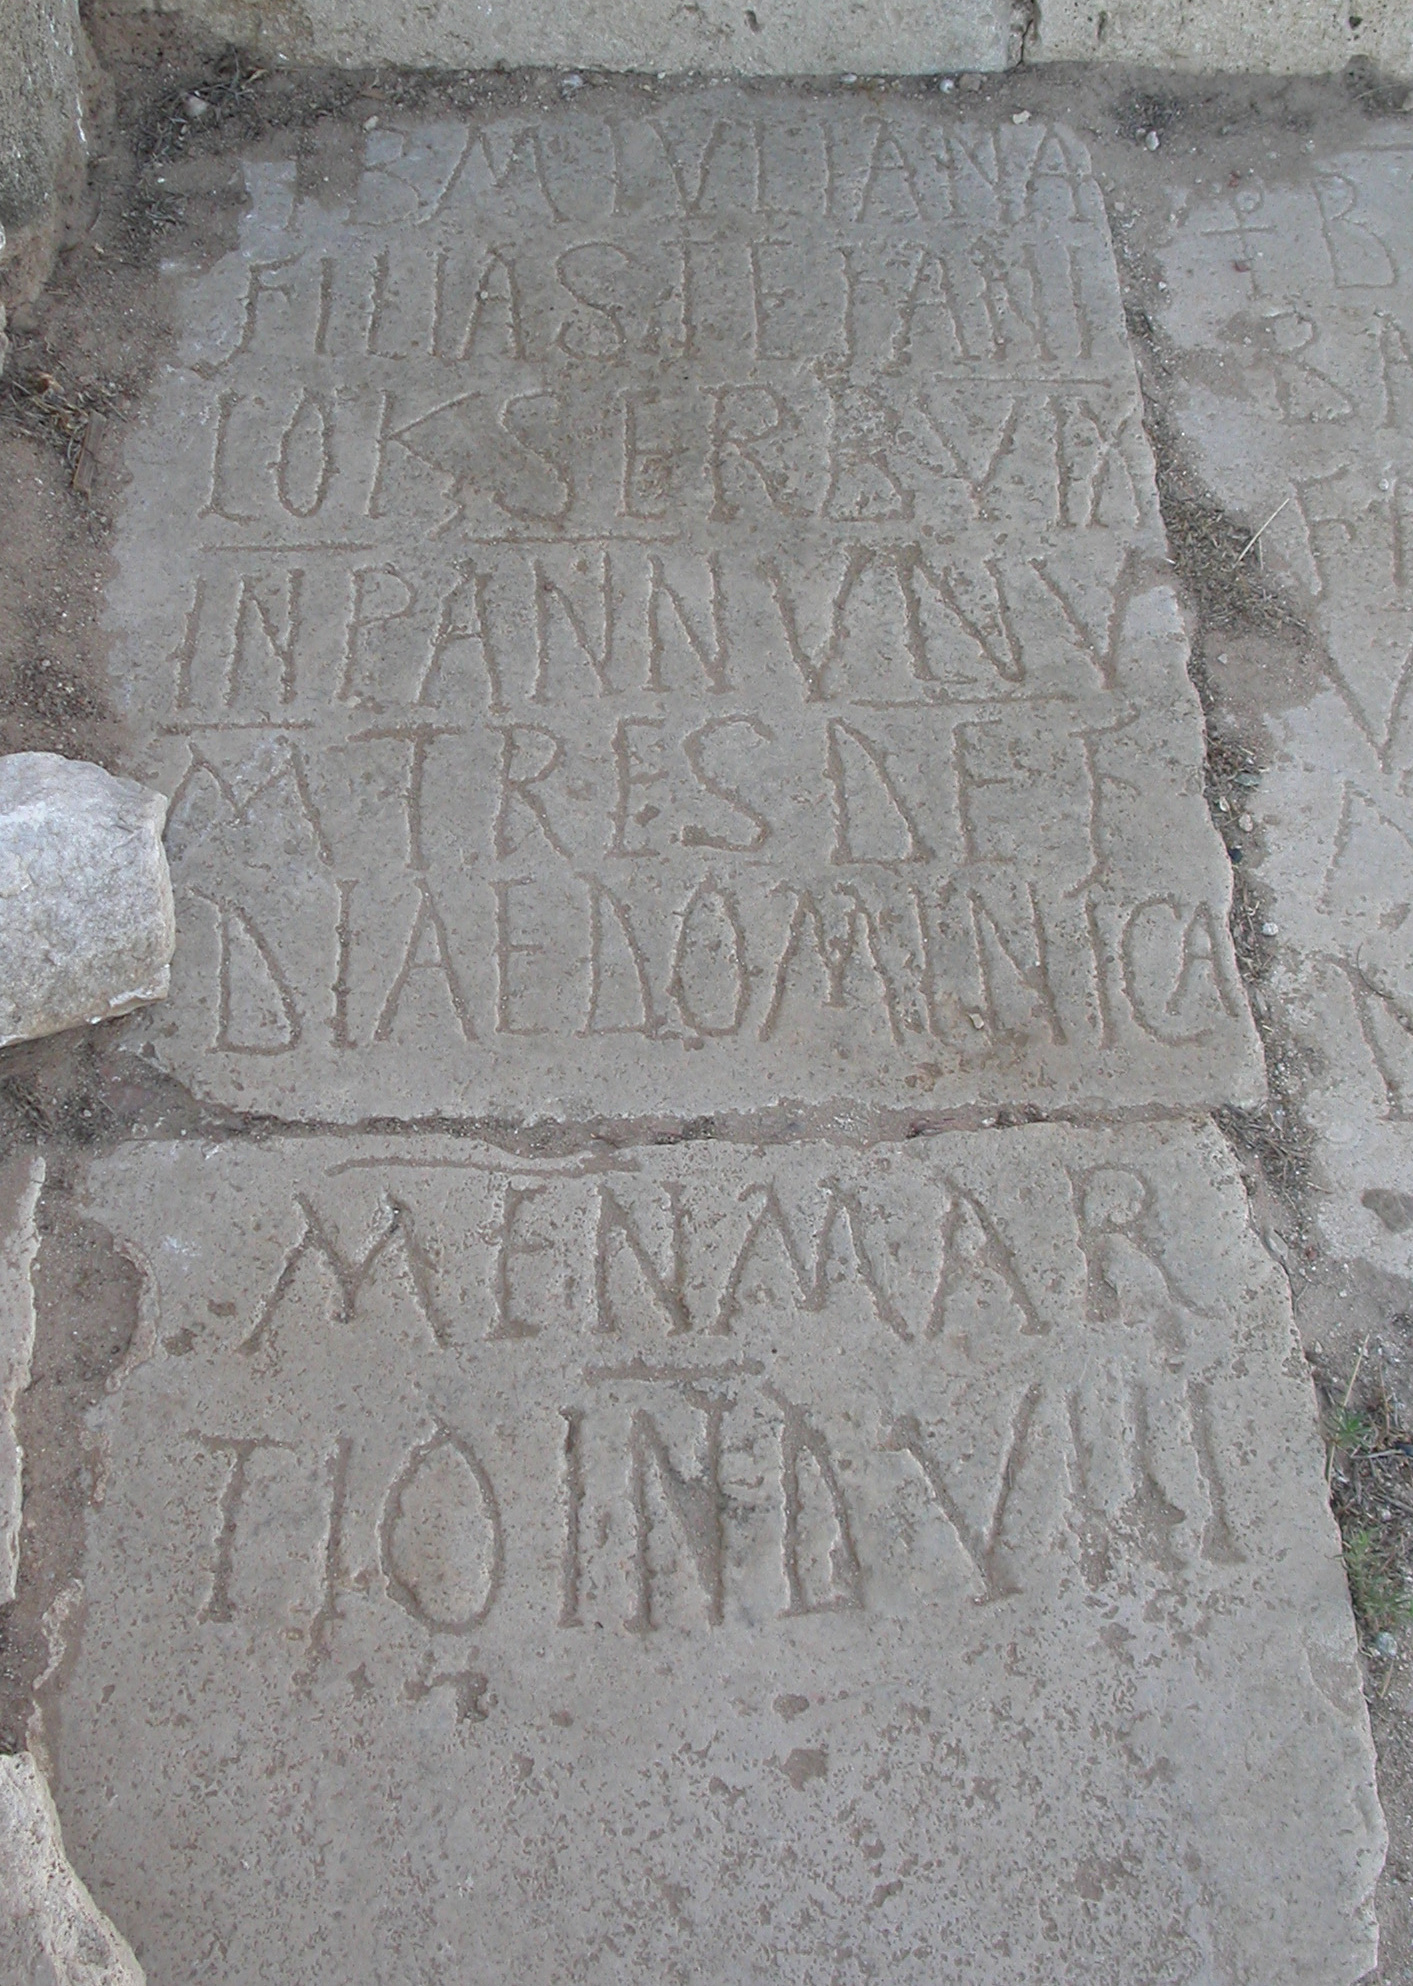 † B M IVLIANA
FILIA STEFANI
LOK SERB VIX
IN P ANN VNV
M TRES DEF
DIAE DOMINICA
MEN MAR
TIO IND VIII
† B
BA
FI
V